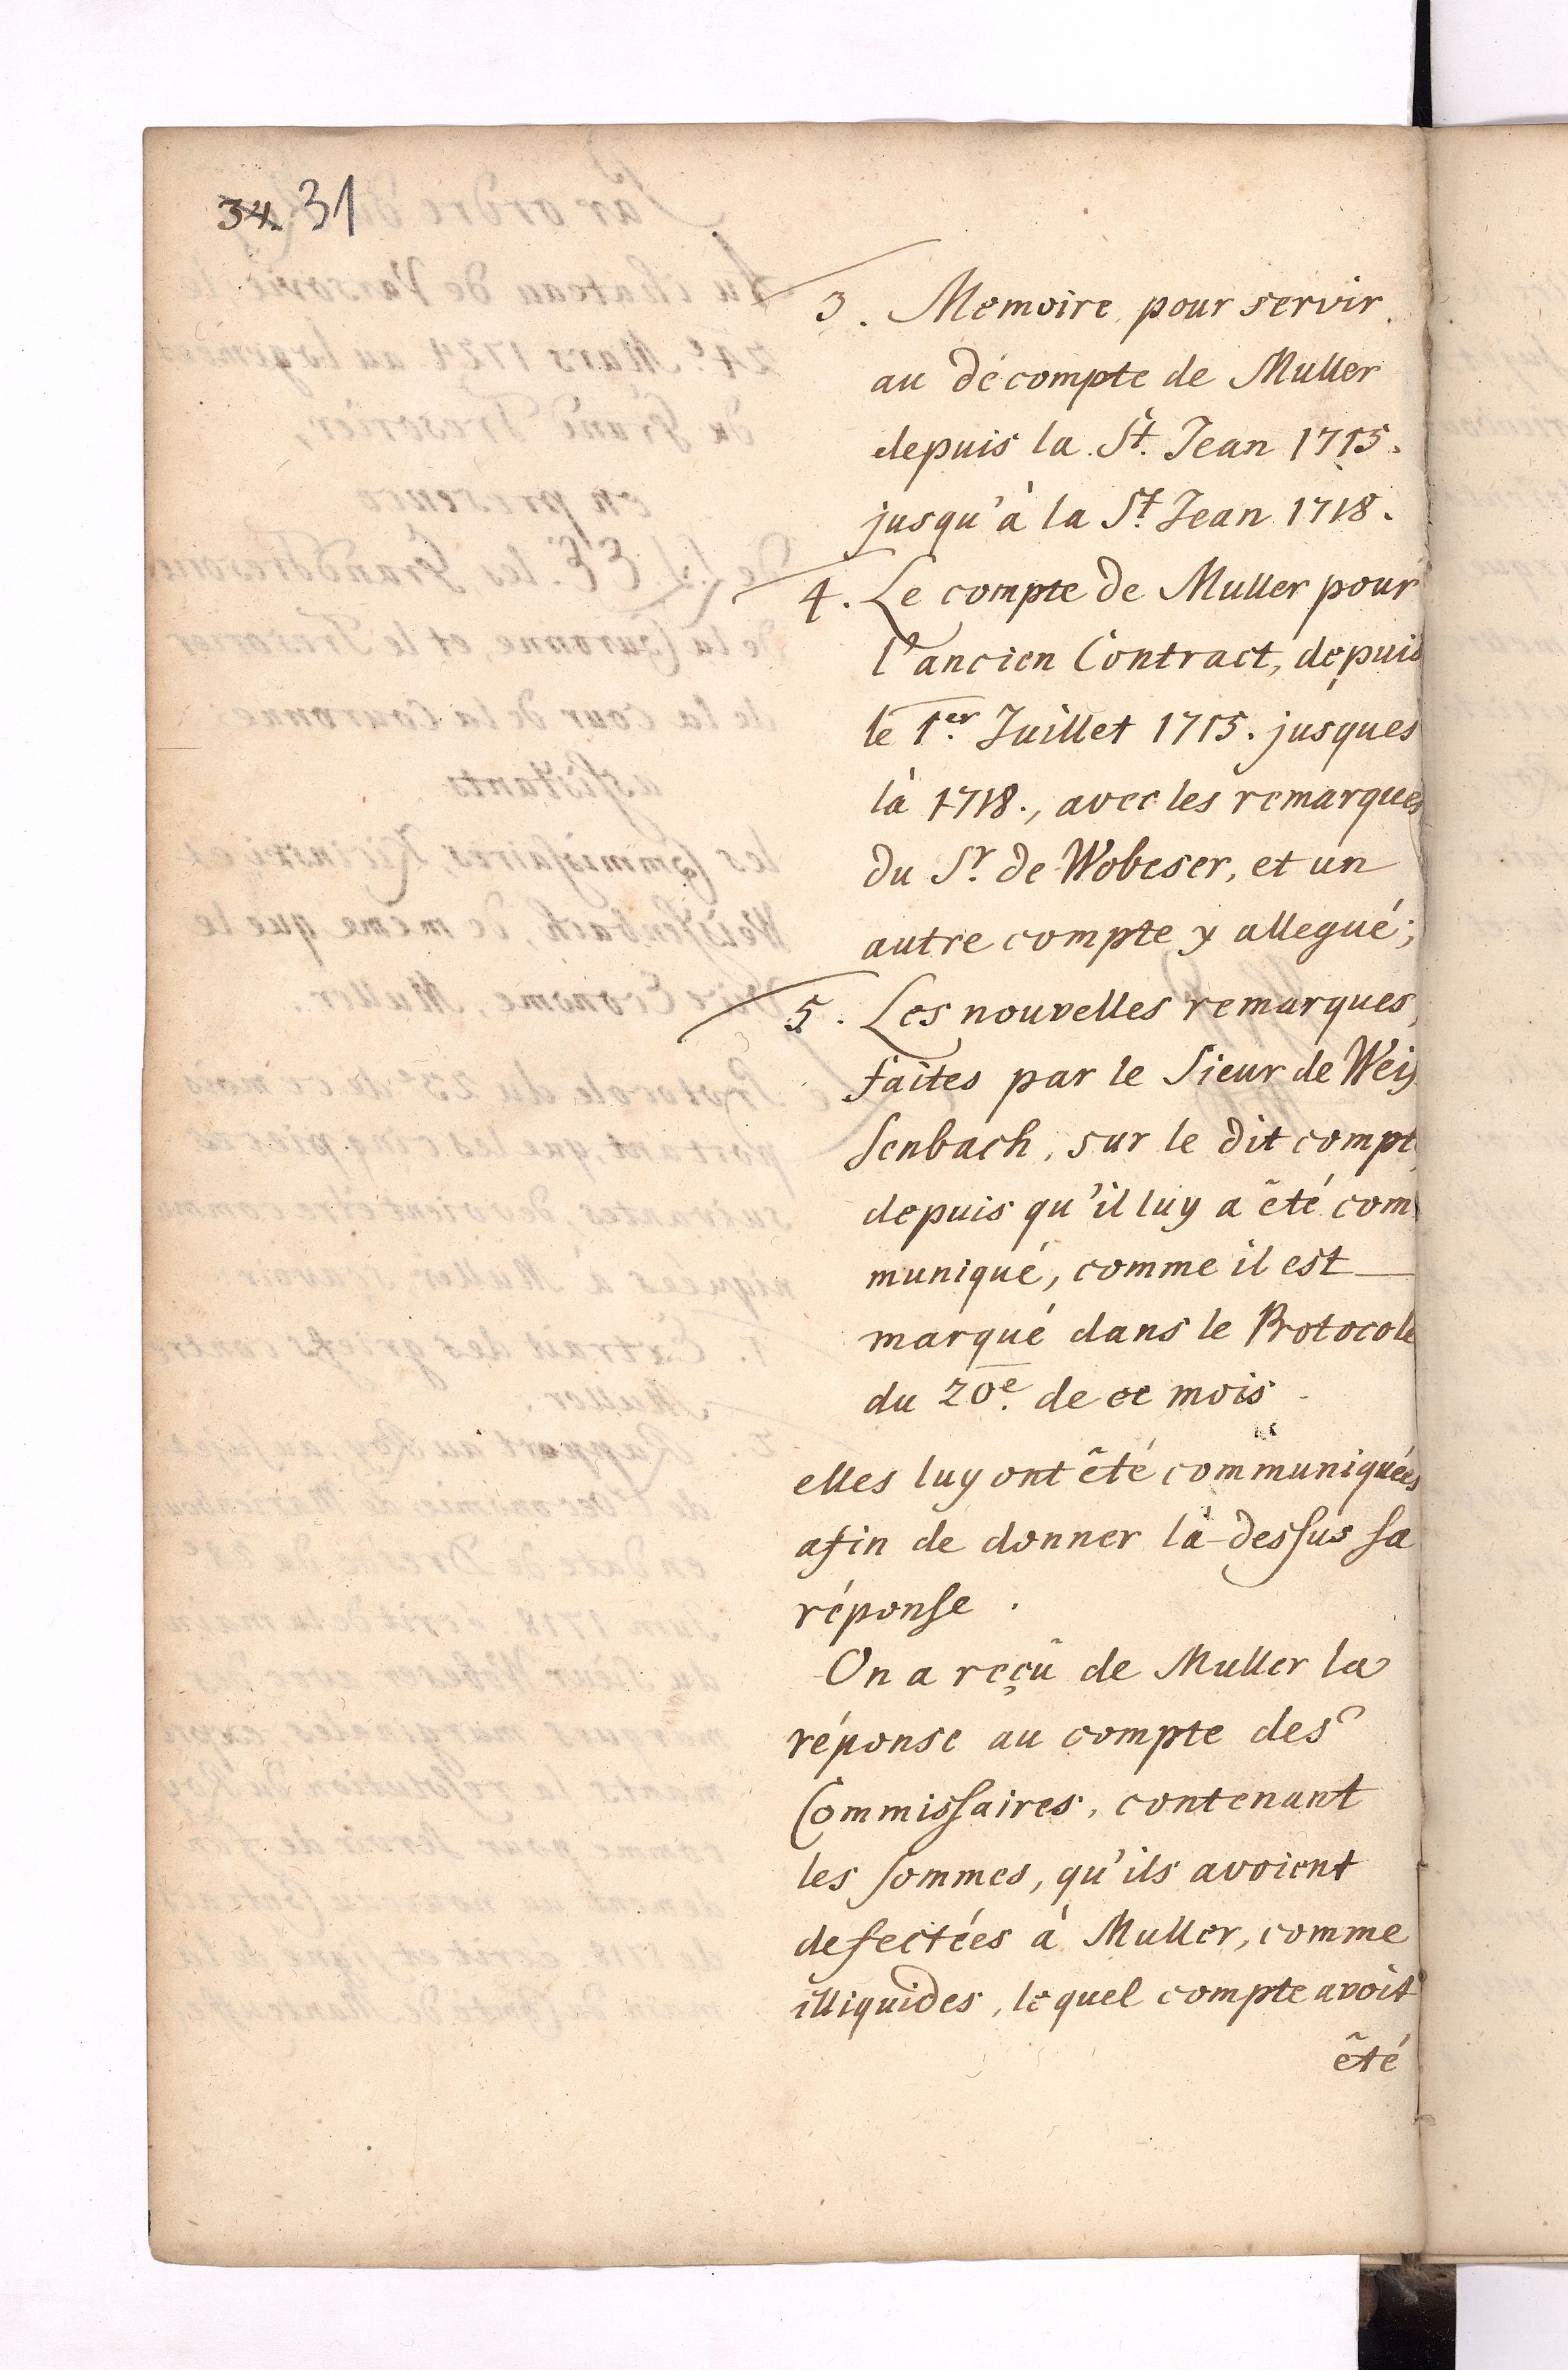 34. 31
3. Memoire pour servir
au décompte de Muller
depuis la St. Jean 1715.
jusqu'à la St. Jean 1718.
4. Le compte de Muller pour
l'ancien Contract, depuis
le 1er. Juillet 1715. jusques
là 1718., avec les remarques
du Sr. de Wobeser, et un
autre compte y allegué;
5. Les nouvelles remarques,
faites par le Sieur de Weis
senbach, sur le dit compte
depuis qu'il luy a êté com
muniqué, comme il est
marqué dans le Protocole
du 20e. de ce mois
elles luy ont êté communiquées
afin de donner là-dessus sa
réponse.
On a reçû de Muller la
réponse au compte des
Commissaires, contenant
les sommes, qu'ils avoient
defectées à Muller, comme
illiquides, lequel compte avoit
êté